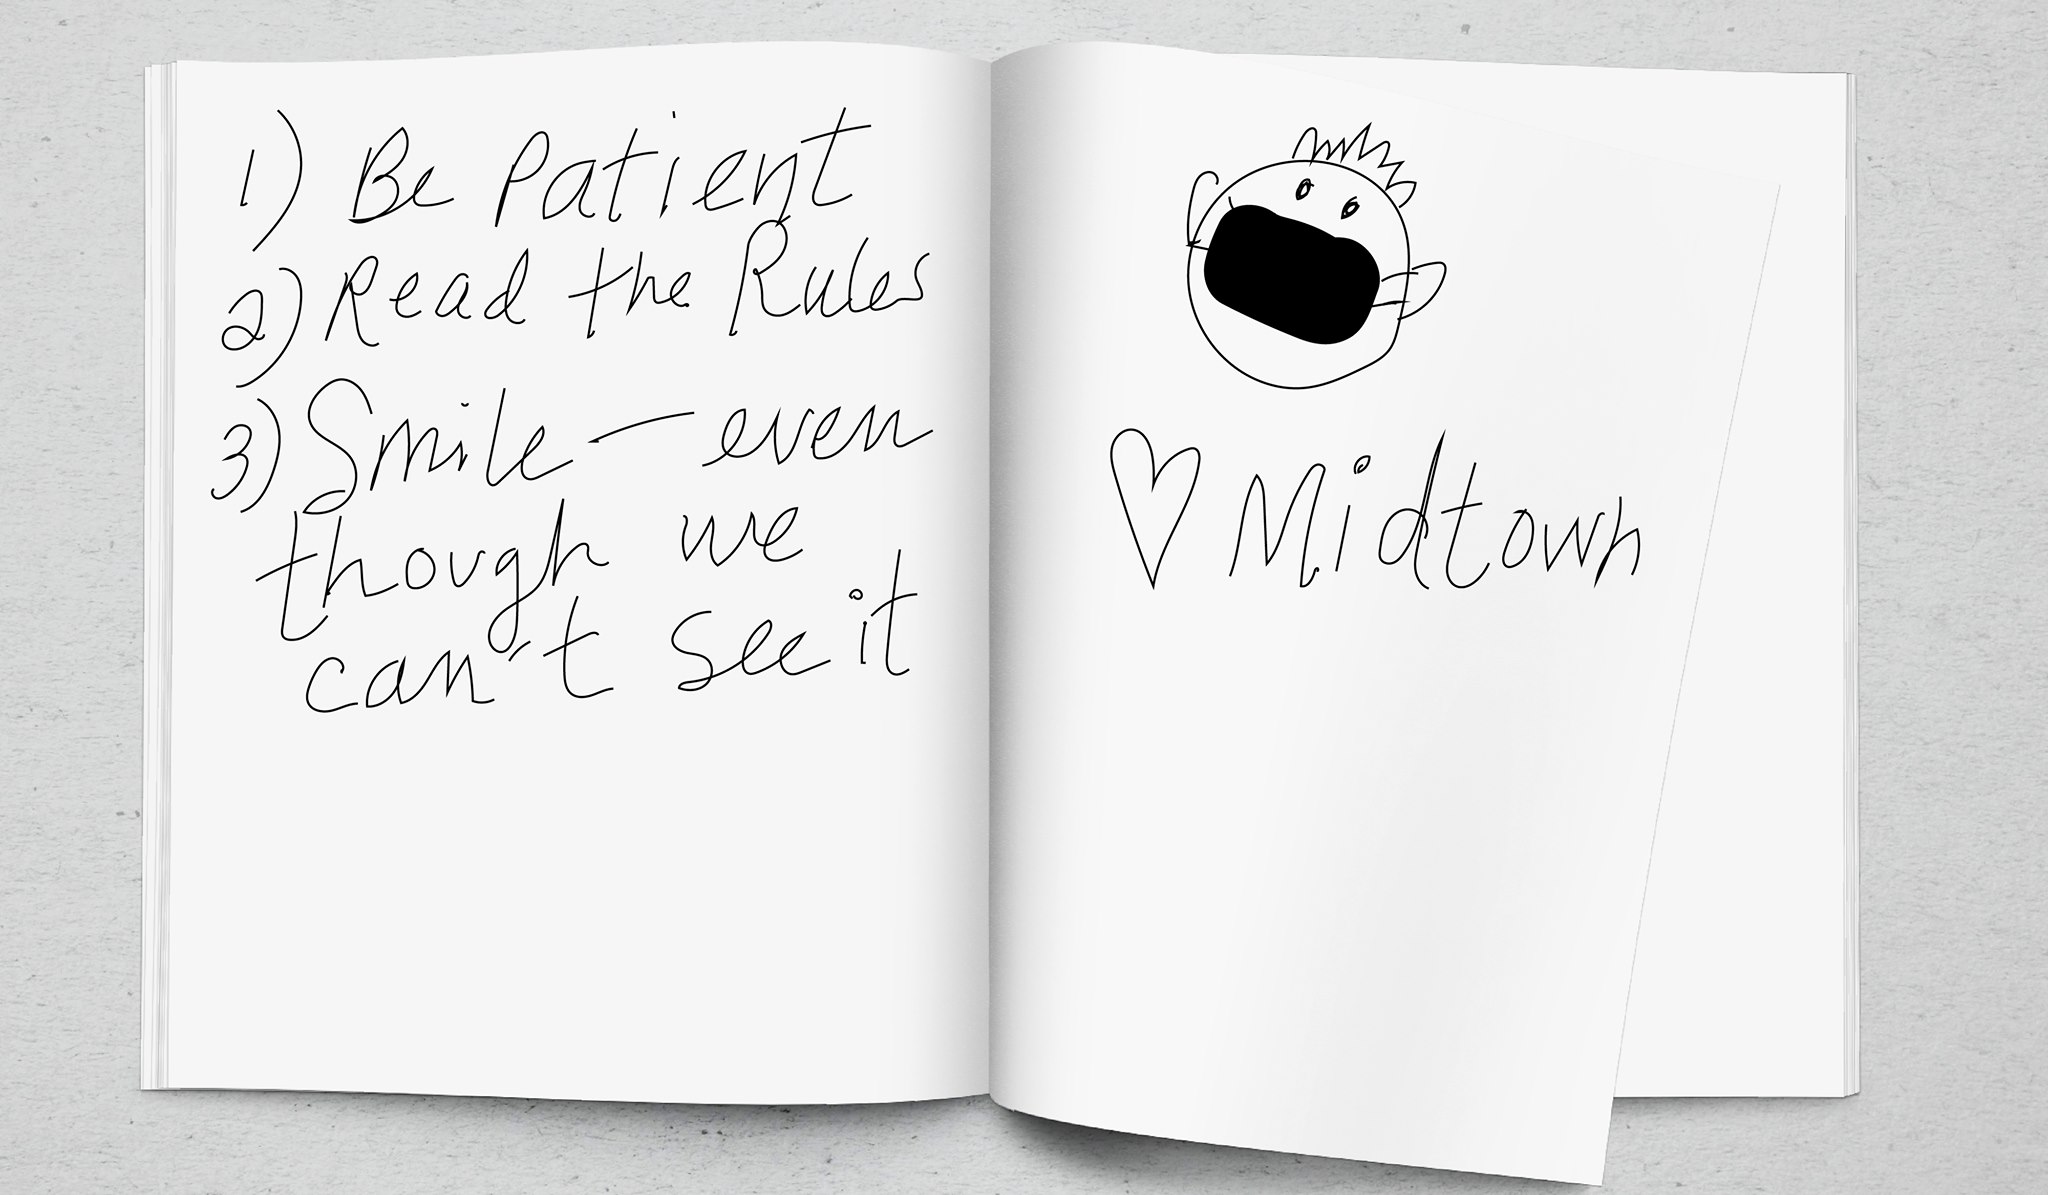 1) Be Patient
2) Read the Rules
3) Smile — even
though we
can't see it
♡ Midtown